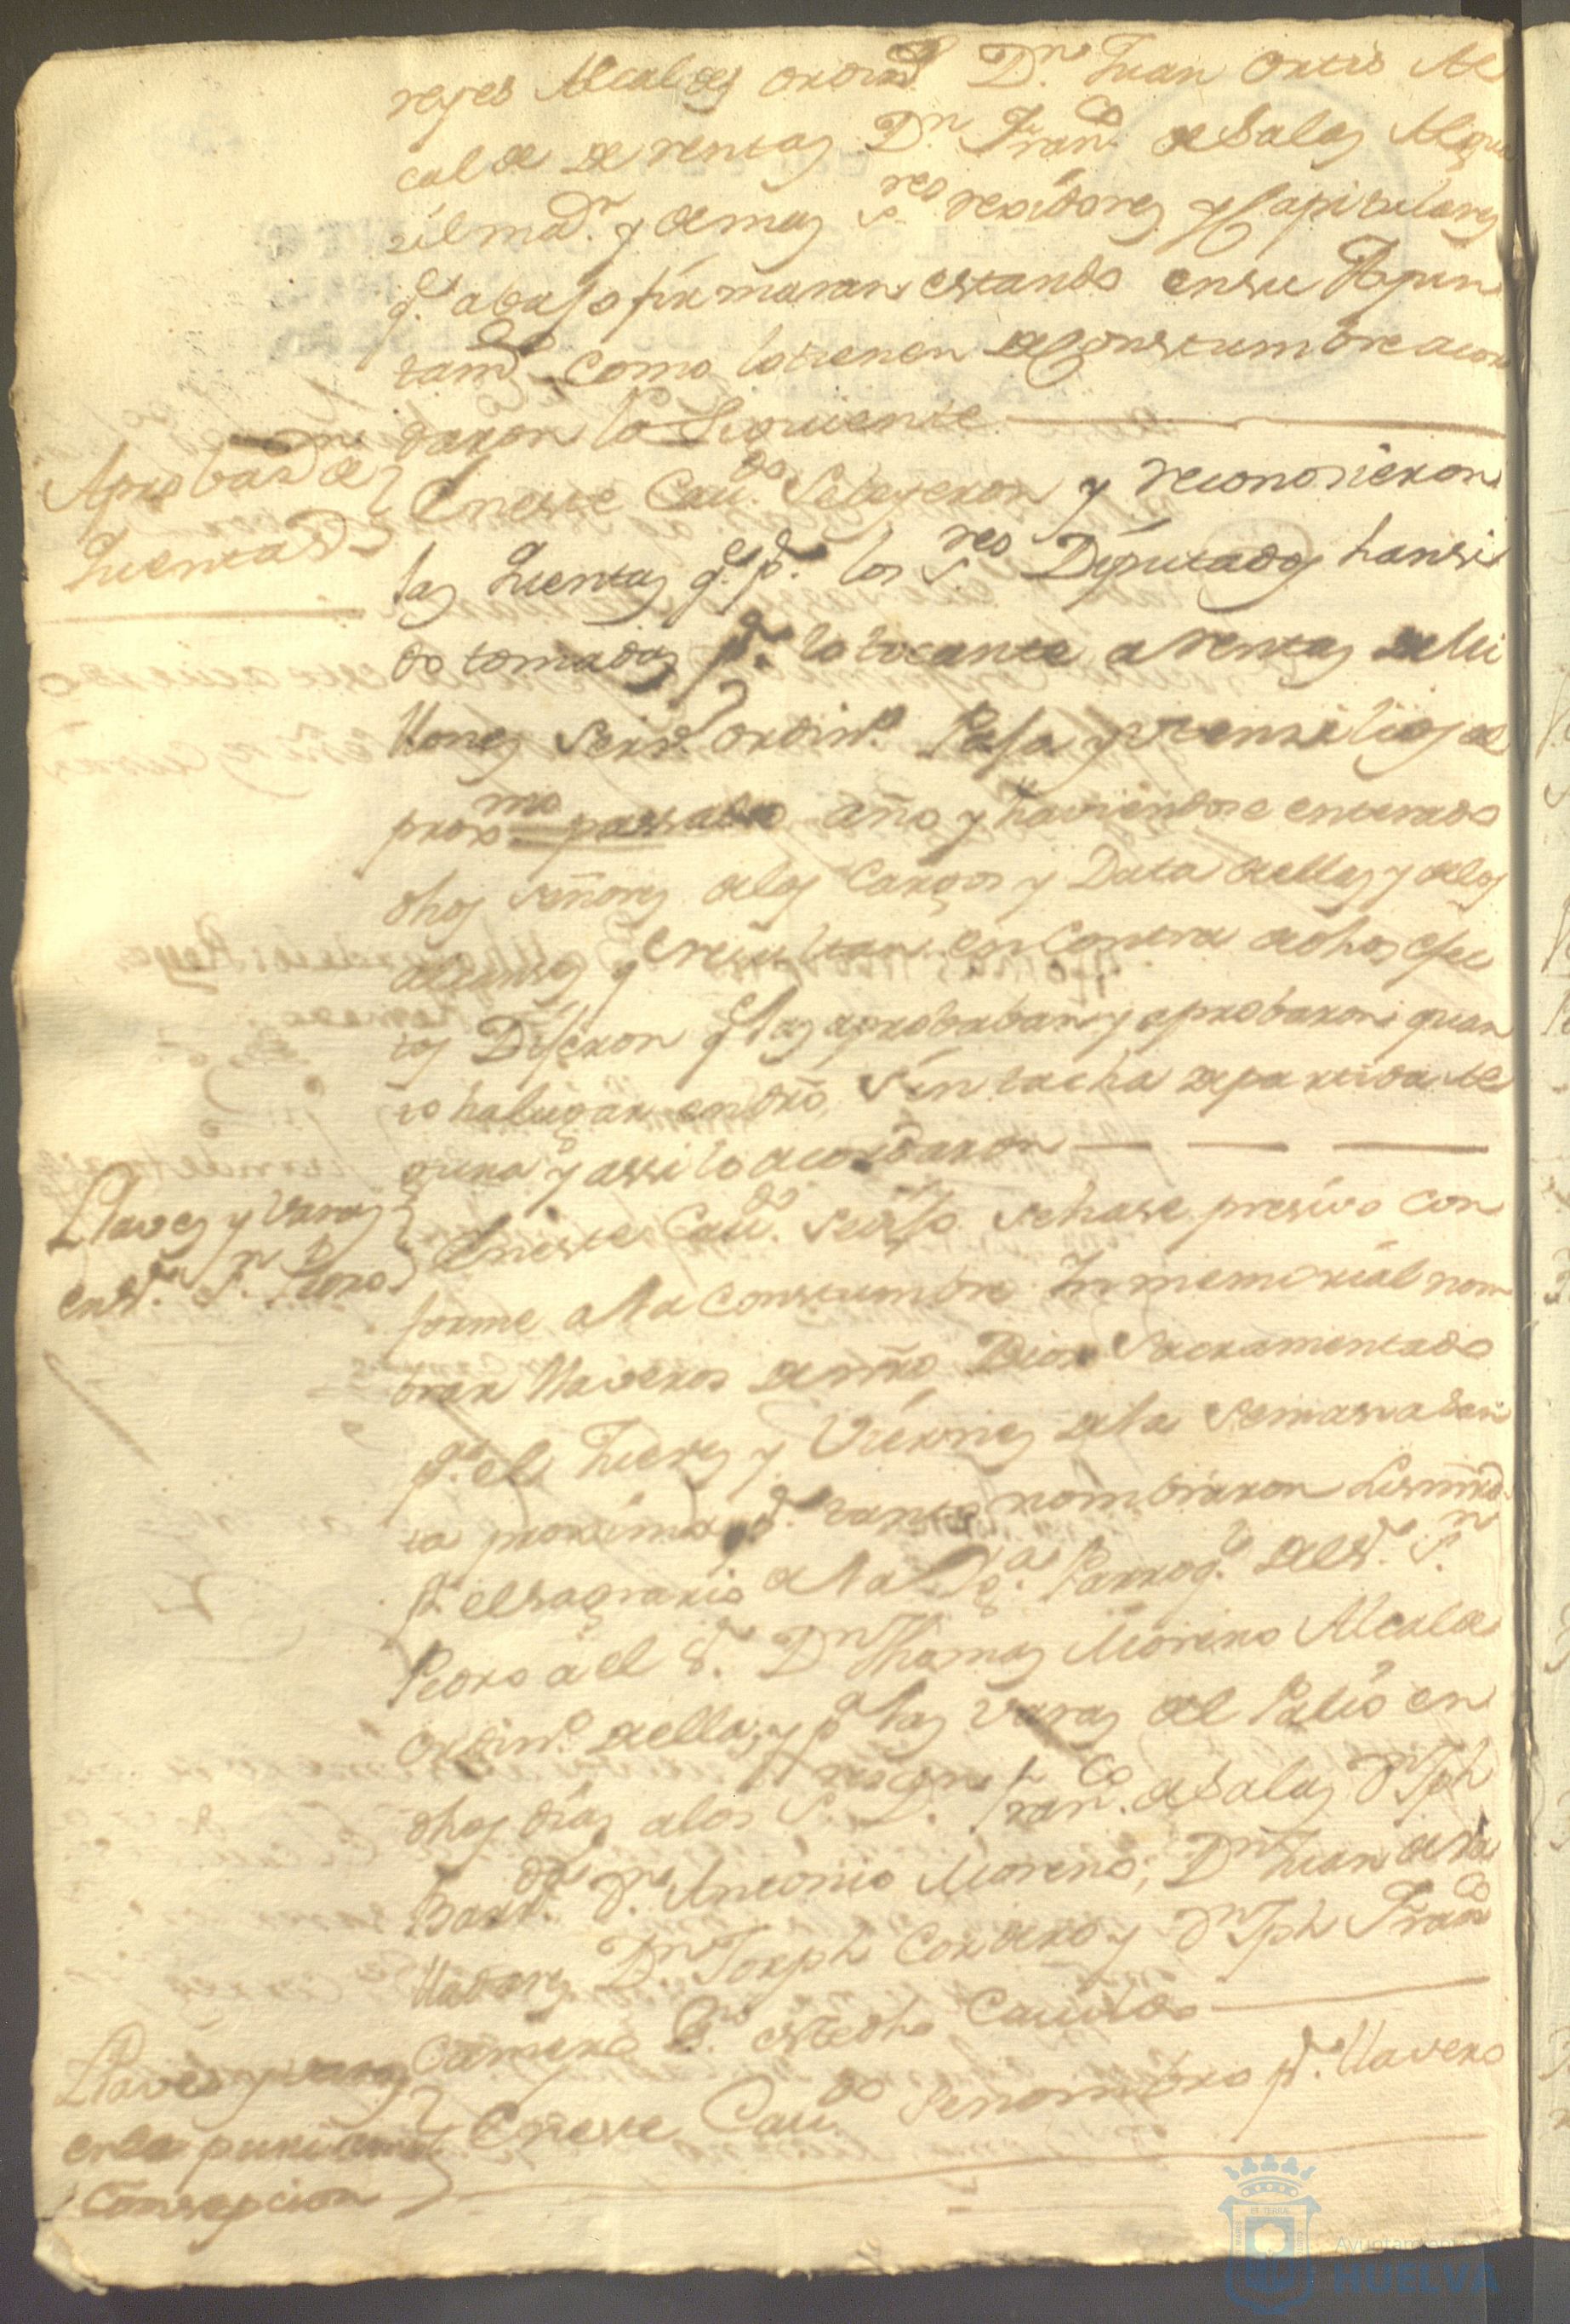 reyes Alcaldes ordin.s D.n Juan Ortis Al
calde de rentas D.n Fran.co de Salas Algua
sil ma.r y demas S.res rexidores y Capitulares
q.e abajo firmaran estando en su Ayun
tam.to como lo tienen de Constumbre acor
daron lo Siguiente
Aprobaz.on de
Quentas
En este Cav.do Se leyeron y reconosieron
las Quentas q.e p.r los S.res Diputados han si
do tomadas p.r lo tocante a rentas de Mi
llones Serv.o ordin.o Paja y Utensilios del
prox.mo passado año y haviendose enterado
dhos señores de los Cargos y Data de ellas y de los
alcanses q.e resultan en Contra de dhos efec
tos Dijeron q.e las aprobaban y aprobaron quan
to ha lugar en dro, Sin tacha de partida al
guna y assi lo acordaron
Llaves y Varas
en S.r S.n Pedro
En este Cav.do Se dijo Se hase presiso Con
forme a la Constumbre Inmemorial nom
brar Llaveros de nro Dios Sacramentado
p.a el Jueves y Viernes de la Semana San
ta proxima p.r tanto nombraron
p.a el sagrario de la Yg.a Parroq.l de S.r S.n
Pedro a el S.r D.n Thomas Moreno Alcalde
ordin.o de ella, y p.a las Varas del Palio en
dhos dias a los S.res D.n Fran.co de Salas D.n Jph
D.n Antonio Moreno, D.n Juan de la
D.n Joseph Cordero y D.n Jph Fran.co
Camero S.no de dho Cavildo
Llaves y varas
en la purisima
Consepcion
En este Cav.do Se nombro p.r Llavero
Ayuntamiento de
HUELVA